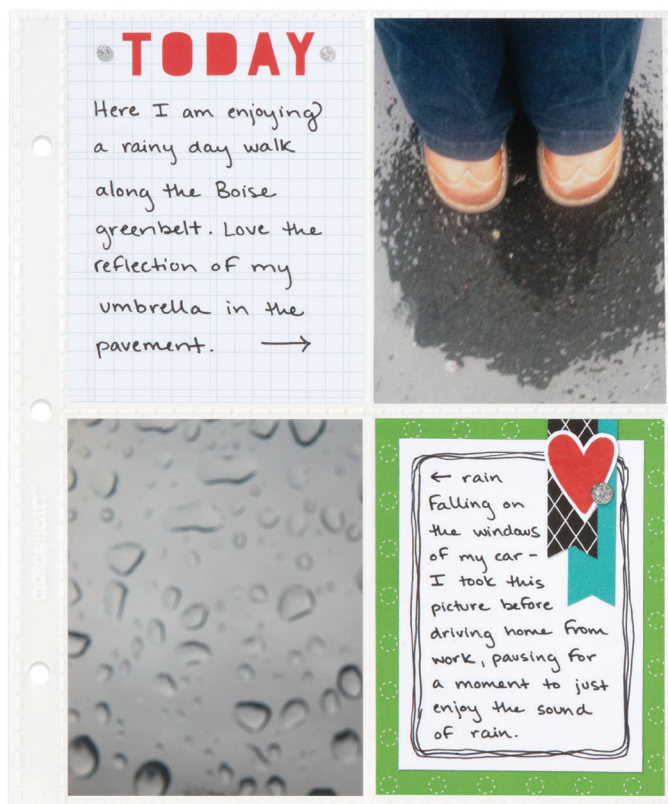 TODAY
Here I am enjoying
a rainy day walk
along the Boise
greenbelt. Love the
reflection of my
umbrella in the
pavement. →
← rain
falling on
the windows
of my car -
I took this
picture before
driving home from
work, pausing for
a moment to just
enjoy the sound
of rain.